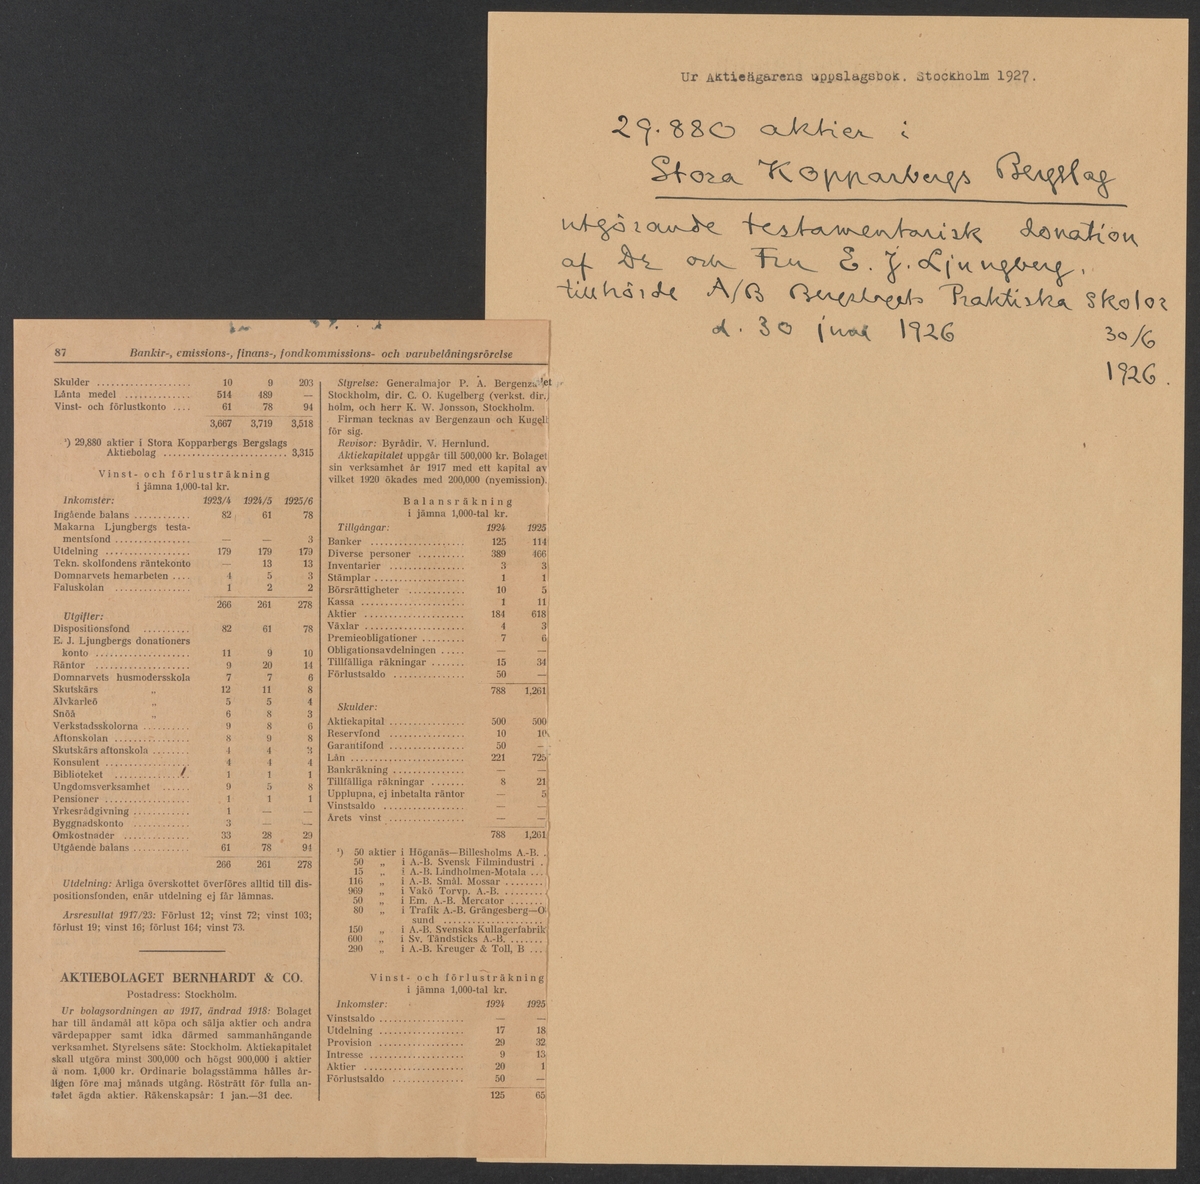 Ur Aktieägarens uppslagsbok. Stockholm 1927.
29.880 aktier i
Stora Kopparbergs Bergslag
utgörande testamentarisk donation
af Dr och Fru E. J. Ljungberg,
tillhörde A/B Bergslagets Praktiska Skolor
d. 30 juni 1926
30/6
1926.
87 Bankir-, emissions-, finans-, fondkommissions- och varubelåningsrörelse
Skulder .................... 10 9 203
Lånta medel .............. 514 489 —
Vinst- och förlustkonto .... 61 78 94
3,667 3,719 3,518
¹) 29,880 aktier i Stora Kopparbergs Bergslags
Aktiebolag ........................ 3,315
Vinst- och förlusträkning
i jämna 1,000-tal kr.
Inkomster: 1923/4 1924/5 1925/6
Ingående balans ............ 82 61 78
Makarna Ljungbergs testa-
mentsfond ................ — — 3
Utdelning .................. 179 179 179
Tekn. skolfondens räntekonto — 13 13
Domnarvets hemarbeten .... 4 5 3
Faluskolan ................ 1 2 2
266 261 278
Utgifter:
Dispositionsfond .......... 82 61 78
E. J. Ljungbergs donationers
konto .................... 11 9 10
Räntor .................... 9 20 14
Domnarvets husmodersskola 7 7 6
Skutskärs „ 12 11 8
Älvkarleö „ 5 5 4
Snöå „ 6 8 3
Verkstadsskolorna .......... 9 8 6
Aftonskolan ................ 8 9 8
Skutskärs aftonskola ........ 4 4 3
Konsulent .................. 4 4 4
Biblioteket ............ 1 1 1
Ungdomsverksamhet ...... 9 5 8
Pensioner .................. 1 1 1
Yrkesrådgivning ............ 1 — —
Byggnadskonto ............ 3 — —
Omkostnader .............. 33 28 29
Utgående balans ............ 61 78 94
266 261 278
Utdelning: Årliga överskottet överföres alltid till dis-
positionsfonden, enär utdelning ej får lämnas.
Årsresultat 1917/23: Förlust 12; vinst 72; vinst 103;
förlust 19; vinst 16; förlust 164; vinst 73.
AKTIEBOLAGET BERNHARDT & CO.
Postadress: Stockholm.
Ur bolagsordningen av 1917, ändrad 1918: Bolaget
har till ändamål att köpa och sälja aktier och andra
värdepapper samt idka därmed sammanhängande
verksamhet. Styrelsens säte: Stockholm. Aktiekapitalet
skall utgöra minst 300,000 och högst 900,000 i aktier
å nom. 1,000 kr. Ordinarie bolagsstämma hålles år-
ligen före maj månads utgång. Rösträtt för fulla an-
talet ägda aktier. Räkenskapsår: 1 jan.—31 dec.
Styrelse: Generalmajor P. A.
Stockholm, dir. C. O. Kugelberg (verkst. dir.)
holm, och herr K. W. Jonsson, Stockholm.
Firman tecknas av Bergenzaun och Kugel
för sig.
Revisor: Byrådir. V. Hernlund.
Aktiekapitalet uppgår till 500,000 kr. Bolaget
sin verksamhet år 1917 med ett kapital av
vilket 1920 ökades med 200,000 (nyemission).
Balansräkning
i jämna 1,000-tal kr.
Tillgångar: 1924 1925
Banker .................... 125 114
Diverse personer .......... 389 466
Inventarier ................ 3 3
Stämplar .................. 1 1
Börsrättigheter ............ 10 5
Kassa .................... 1 11
Aktier .................... 184 618
Växlar .................... 4 3
Premieobligationer ......... 7 6
Obligationsavdelningen ..... — —
Tillfälliga räkningar ....... 15 34
Förlustsaldo .............. 50 —
788 1,261
Skulder:
Aktiekapital ................ 500 500
Reservfond ................ 10 10
Garantifond ................ 50 —
Lån ...................... 221 725
Bankräkning .............. — —
Tillfälliga räkningar ....... 8 21
Upplupna, ej inbetalta räntor — 5
Vinstsaldo ................ — —
Årets vinst ................ — —
788 1,261
¹) 50 aktier i Höganäs—Billesholms A.-B. .
50 „ i A.-B. Svensk Filmindustri .
15 „ i A.-B. Lindholmen-Motala ...
116 „ i A.-B. Smål. Mossar ........
969 „ i Vakö Torvp. A.-B. ........
50 „ i Em. A.-B. Mercator .......
80 „ i Trafik A.-B. Grängesberg—O
sund ....................
150 „ i A.-B. Svenska Kullagerfabrik
600 „ i Sv. Tändsticks A.-B. .......
290 „ i A.-B. Kreuger & Toll, B ...
Vinst- och förlusträkning
i jämna 1,000-tal kr.
Inkomster: 1924 1925
Vinstsaldo ................ — —
Utdelning ................ 17 18
Provision ................ 29 32
Intresse .................. 9 13
Aktier .................... 20 1
Förlustsaldo .............. 50 —
125 65